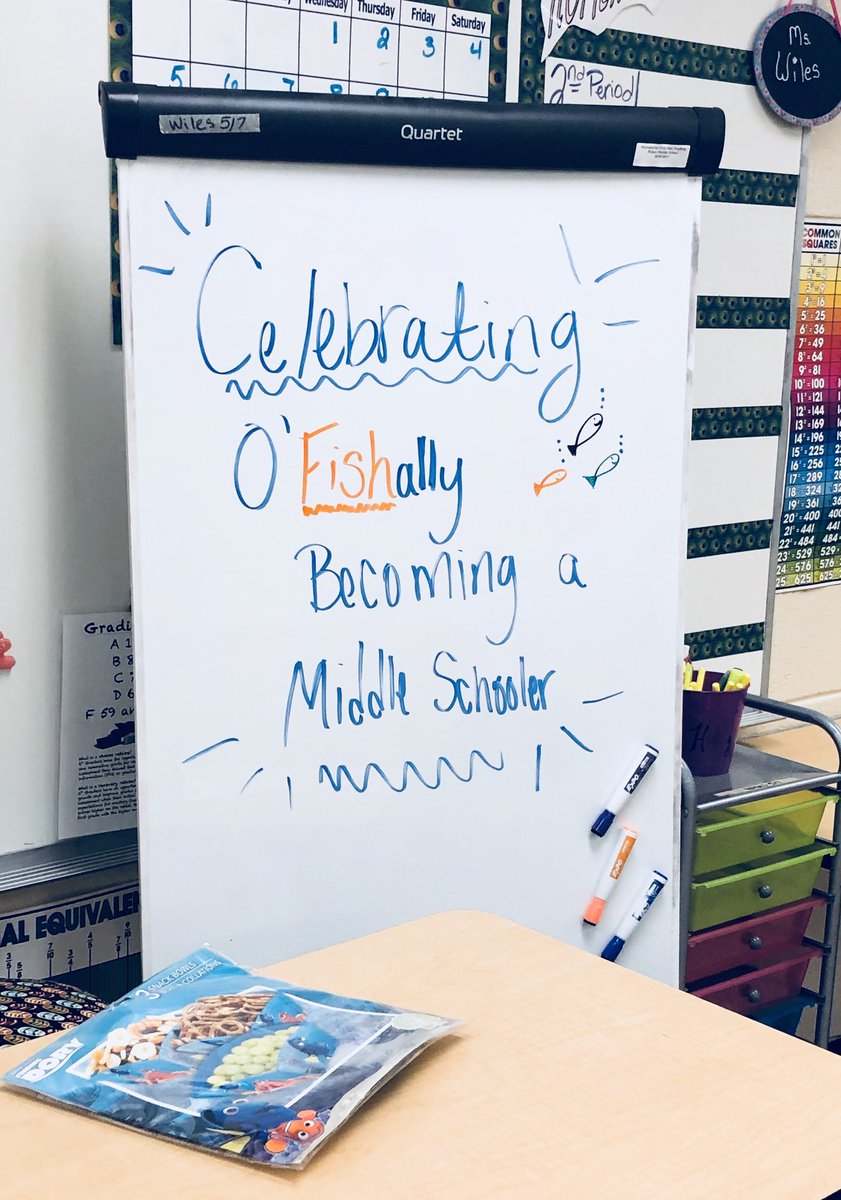 Wednesday Thursday Friday Saturday
1 2 3 4
5 6 7 8
2nd Period
Ms.
Wiles
Wiles 5/7
Quartet
Celebrating
O'Fishally
Becoming a
Middle Schooler
COMMON
SQUARES
3²=9
4²=16
5²=25
6²=36
7²=49
8²=64
9²=81
10²=100
11²=121
12²=144
13²=169
14²=196
15²=225
16²=256
17²=289
18²=324
19²=361
20²=400
21²=441
22²=484
23²=529
24²=576
25²=625
Gradi
A 1
B 8
C 7
D 6
F 59 a
EXPO
EXPO
EXPO
AL EQUIVALEN
3/5 5/8 7/10 3/4 4/5 7/8 9/10
3 SNACK BOWLS
DORY